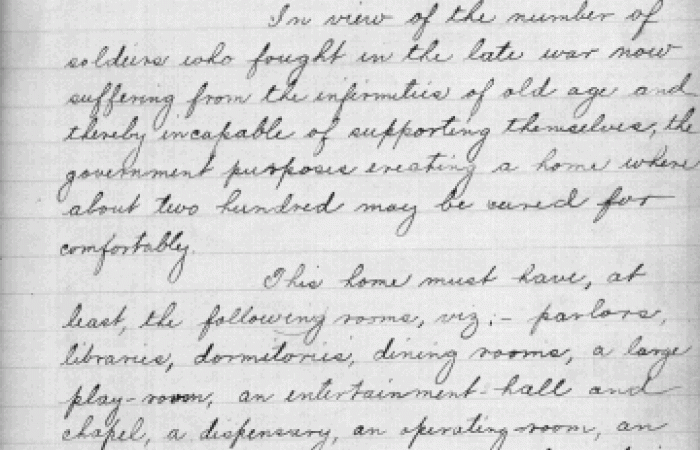 In view of the number of
soldiers who fought in the late war now
suffering from the infirmities of old age and
thereby incapable of supporting themselves, the
government purposes erecting a home where
about two hundred may be cared for
comfortably.
This home must have, at
least, the following rooms, viz:- parlors,
libraries, dormitories, dining rooms, a large
play-room, an entertainment-hall and
chapel, a dispensary, an operating-room, an